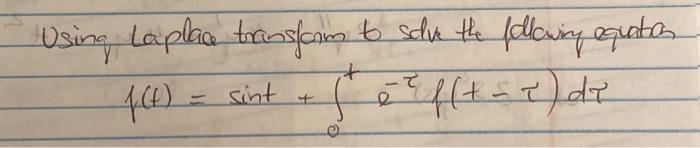 Using Laplace transform to solve the following equation
f(t) = sint + ∫₀ᵗ e^{-τ} f(t - τ) dτ